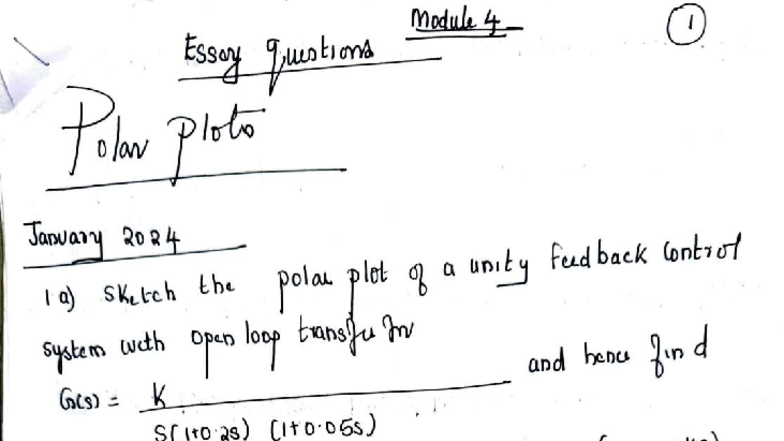 Module 4
1
Essay questions
Polar plots
January 2024
1 a) Sketch the polar plot of a unity feedback control
system with open loop transfer fn
G(s) = K and hence find
S(1+0.2s) (1+0.05s)